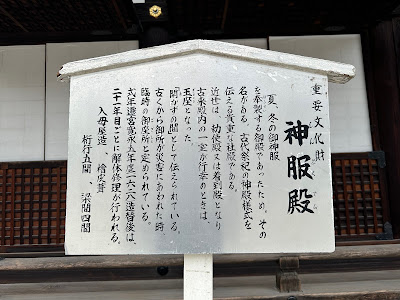 重要文化財
神服殿
夏、冬の御神服
を奉製する御殿であったため、その
名がある。古代祭祀の神殿様式を
伝える貴重な社殿である。
近世は、勅使殿又は着到殿となり
古来殿内の一室が行幸のときは
玉座となった。
「開かずの間」として伝えられている。
古くから御所が災害にあわれた時
臨時の御座所と定められている。
式年遷宮寛永五年(西一六二八)造替後は、
二十一年目ごとに解体修理が行われる。
入母屋造、檜皮葺
桁行五間、梁間四間